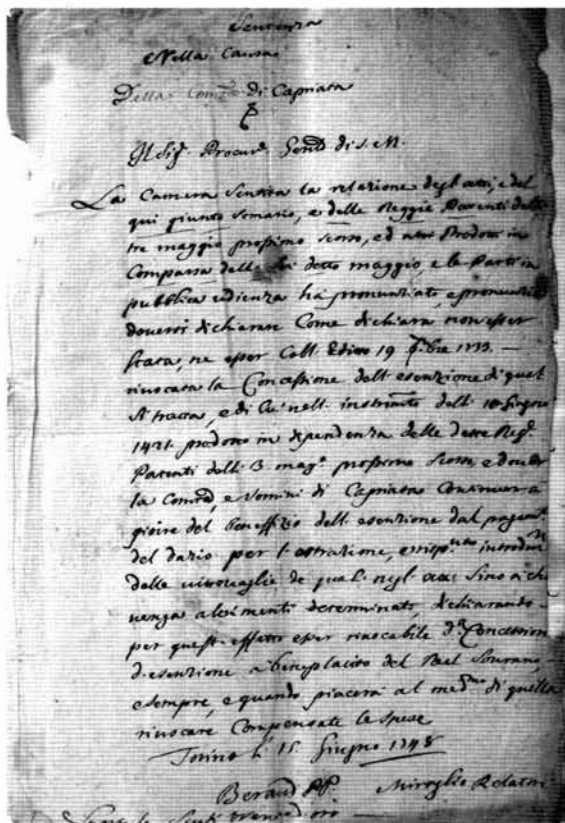 Sentenza
Nella Causa
Della Com.tà di Capriata
Il Sig. Procur.e Gen.le di S. M.
La Camera Sentita la relazione degl'atti, e del
qui giunto somario, e delle Reggie Patenti delli
tre maggio prossimo scorso, ed Prodotte in
Comparsa delli detto maggio, e le Parti in
pubblica udienza ha pronunziato, e pronunzia
doversi dichiarare Come dichiara non esser
stata, ne esser Coll' Editto 19 1733. —
rivocata la Concessione dell' esenzione di quel
si tratta, e di Cui nell' instrum.to delli 18 Giugno
1421. prodotto in dipendenza delle dette Reg.e
Patenti delli 3 mag.o prossimo scorso, e dover
la Com.tà, e Uomini di Capriata Continuar a
gioire del beneffizio dell' esenzione dal pagam.to
del dazio per l' estrazione, introduz.ne
delle vittovaglie, de quali negl' atti Sino a che
venga altrimenti determinato, dichiarando —
per quest' effetto esser rivocabile d.a Concession
d' esenzione a beneplacito del Real Sovrano, —
e sempre, e quando piacerà al med.mo di quella
rivocare Compensate le spese
Torino li 15 Giugno 1748
Beraud PP. Miroglio Relatore